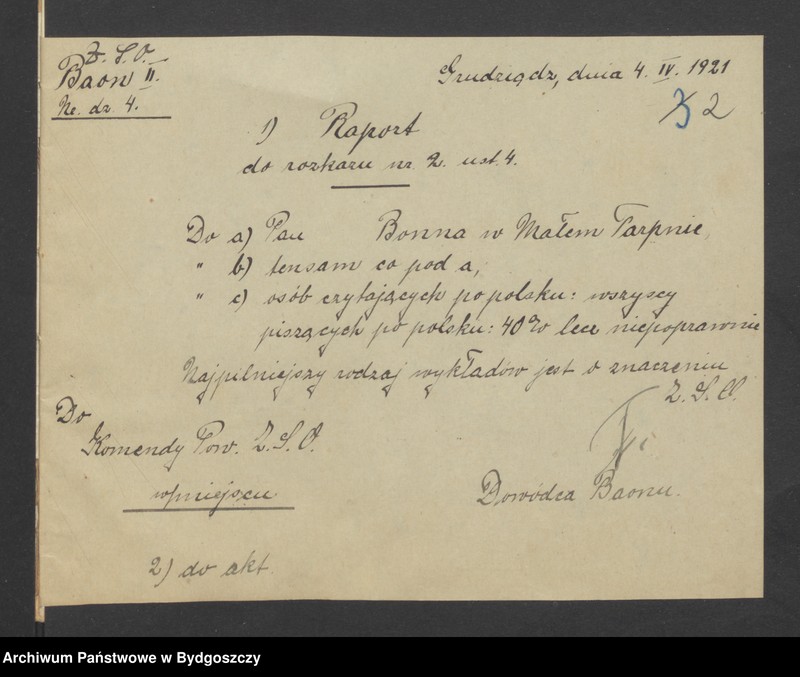 Z. S. O.
Baon II.
Nr. dz. 4.
Grudziądz, dnia 4. IV. 1921
2
1) Raport
do rozkazu nr. 2. ust. 4.
Do a) Pan Bonna w Małem Tarpnie,
" b) tensam co pod a,
" c) osób czytających po polsku: wszyscy
piszących po polsku: 40% lecz niepoprawnie
Najpilniejszy rodzaj wykładów jest o znaczeniu
Z. S. O.
Do
Komendy Pow. Z. S. O.
w/miejscu
Dowódca Baonu.
2) do akt.
Archiwum Państwowe w Bydgoszczy